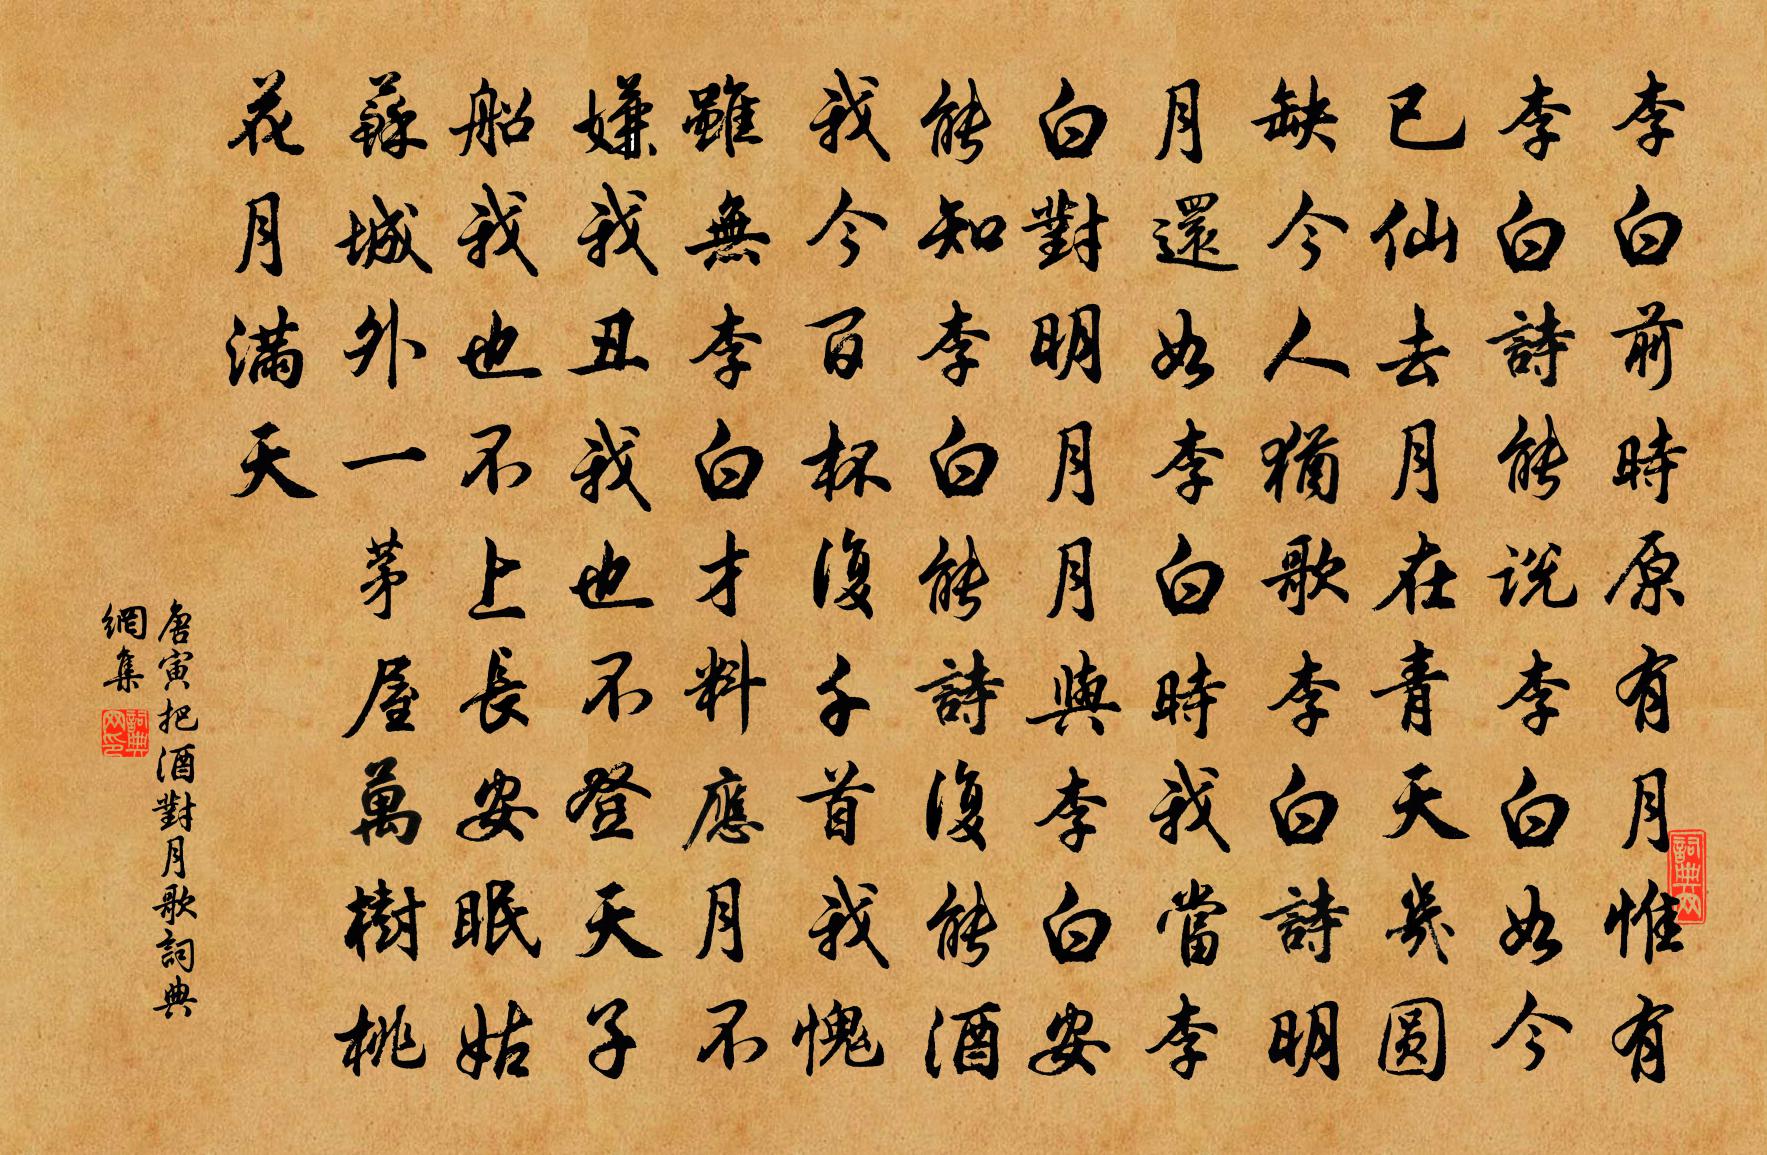 李白前時原有月惟有
李白詩能説李白如今
已仙去月在青天幾圓
缺今人猶歌李白詩明
月還如李白時我當李
白對明月月與李白安
能知李白能詩復能酒
我今百杯復千首我愧
雖無李白才料應月不
嫌我丑我也不登天子
船我也不上長安眠姑
蘇城外一茅屋萬樹桃
花月滿天
唐寅把酒對月歌詞典
網集
詞典网印
詞典网